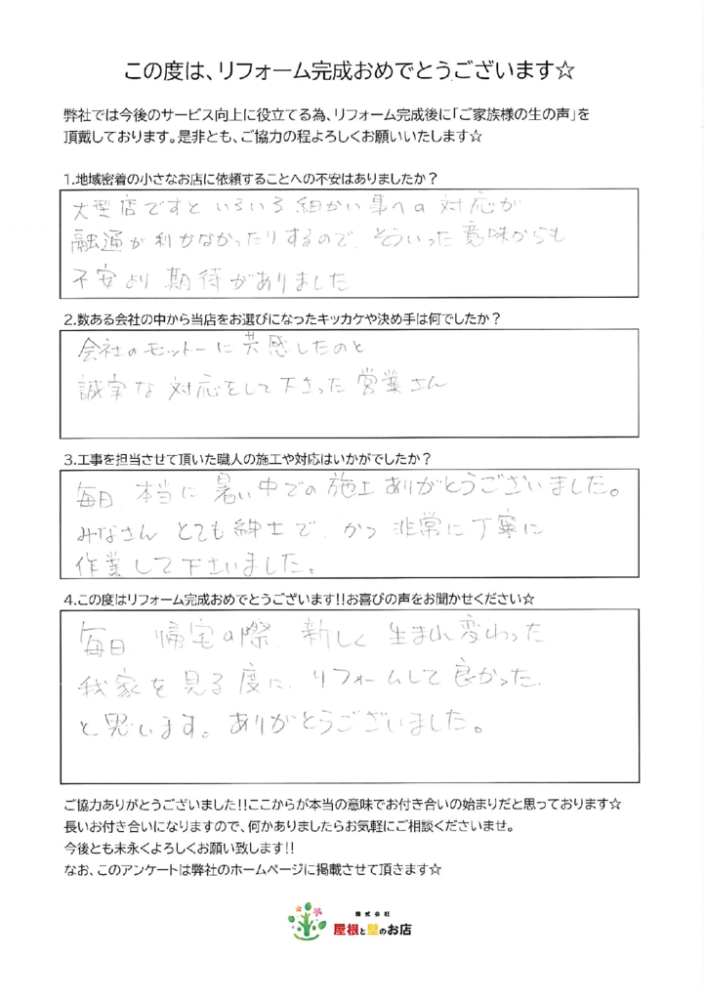 この度は、リフォーム完成おめでとうございます☆
弊社では今後のサービス向上に役立てる為、リフォーム完成後に「ご家族様の生の声」を
頂戴しております。是非とも、ご協力の程よろしくお願いいたします☆
1.地域密着の小さなお店に依頼することへの不安はありましたか？
大型店ですといろいろ細かい事への対応が
融通が利かなかったりするので、そういった意味からも
不安より期待がありました
2.数ある会社の中から当店をお選びになったキッカケや決め手は何でしたか？
会社のモットーに共感したのと
誠実な対応をして下さった営業さん
3.工事を担当させて頂いた職人の施工や対応はいかがでしたか？
毎日、本当に暑い中での施工ありがとうございました。
みなさんとても紳士で、かつ非常に丁寧に
作業して下さいました。
4.この度はリフォーム完成おめでとうございます!!お喜びの声をお聞かせください☆
毎日、帰宅の際、新しく生まれ変わった
我家を見る度に、リフォームして良かった、
と思います。ありがとうございました。
ご協力ありがとうございました!!ここからが本当の意味でお付き合いの始まりだと思っております☆
長いお付き合いになりますので、何かありましたらお気軽にご相談くださいませ。
今後とも末永くよろしくお願い致します!!
なお、このアンケートは弊社のホームページに掲載させて頂きます☆
株式会社
屋根と壁のお店